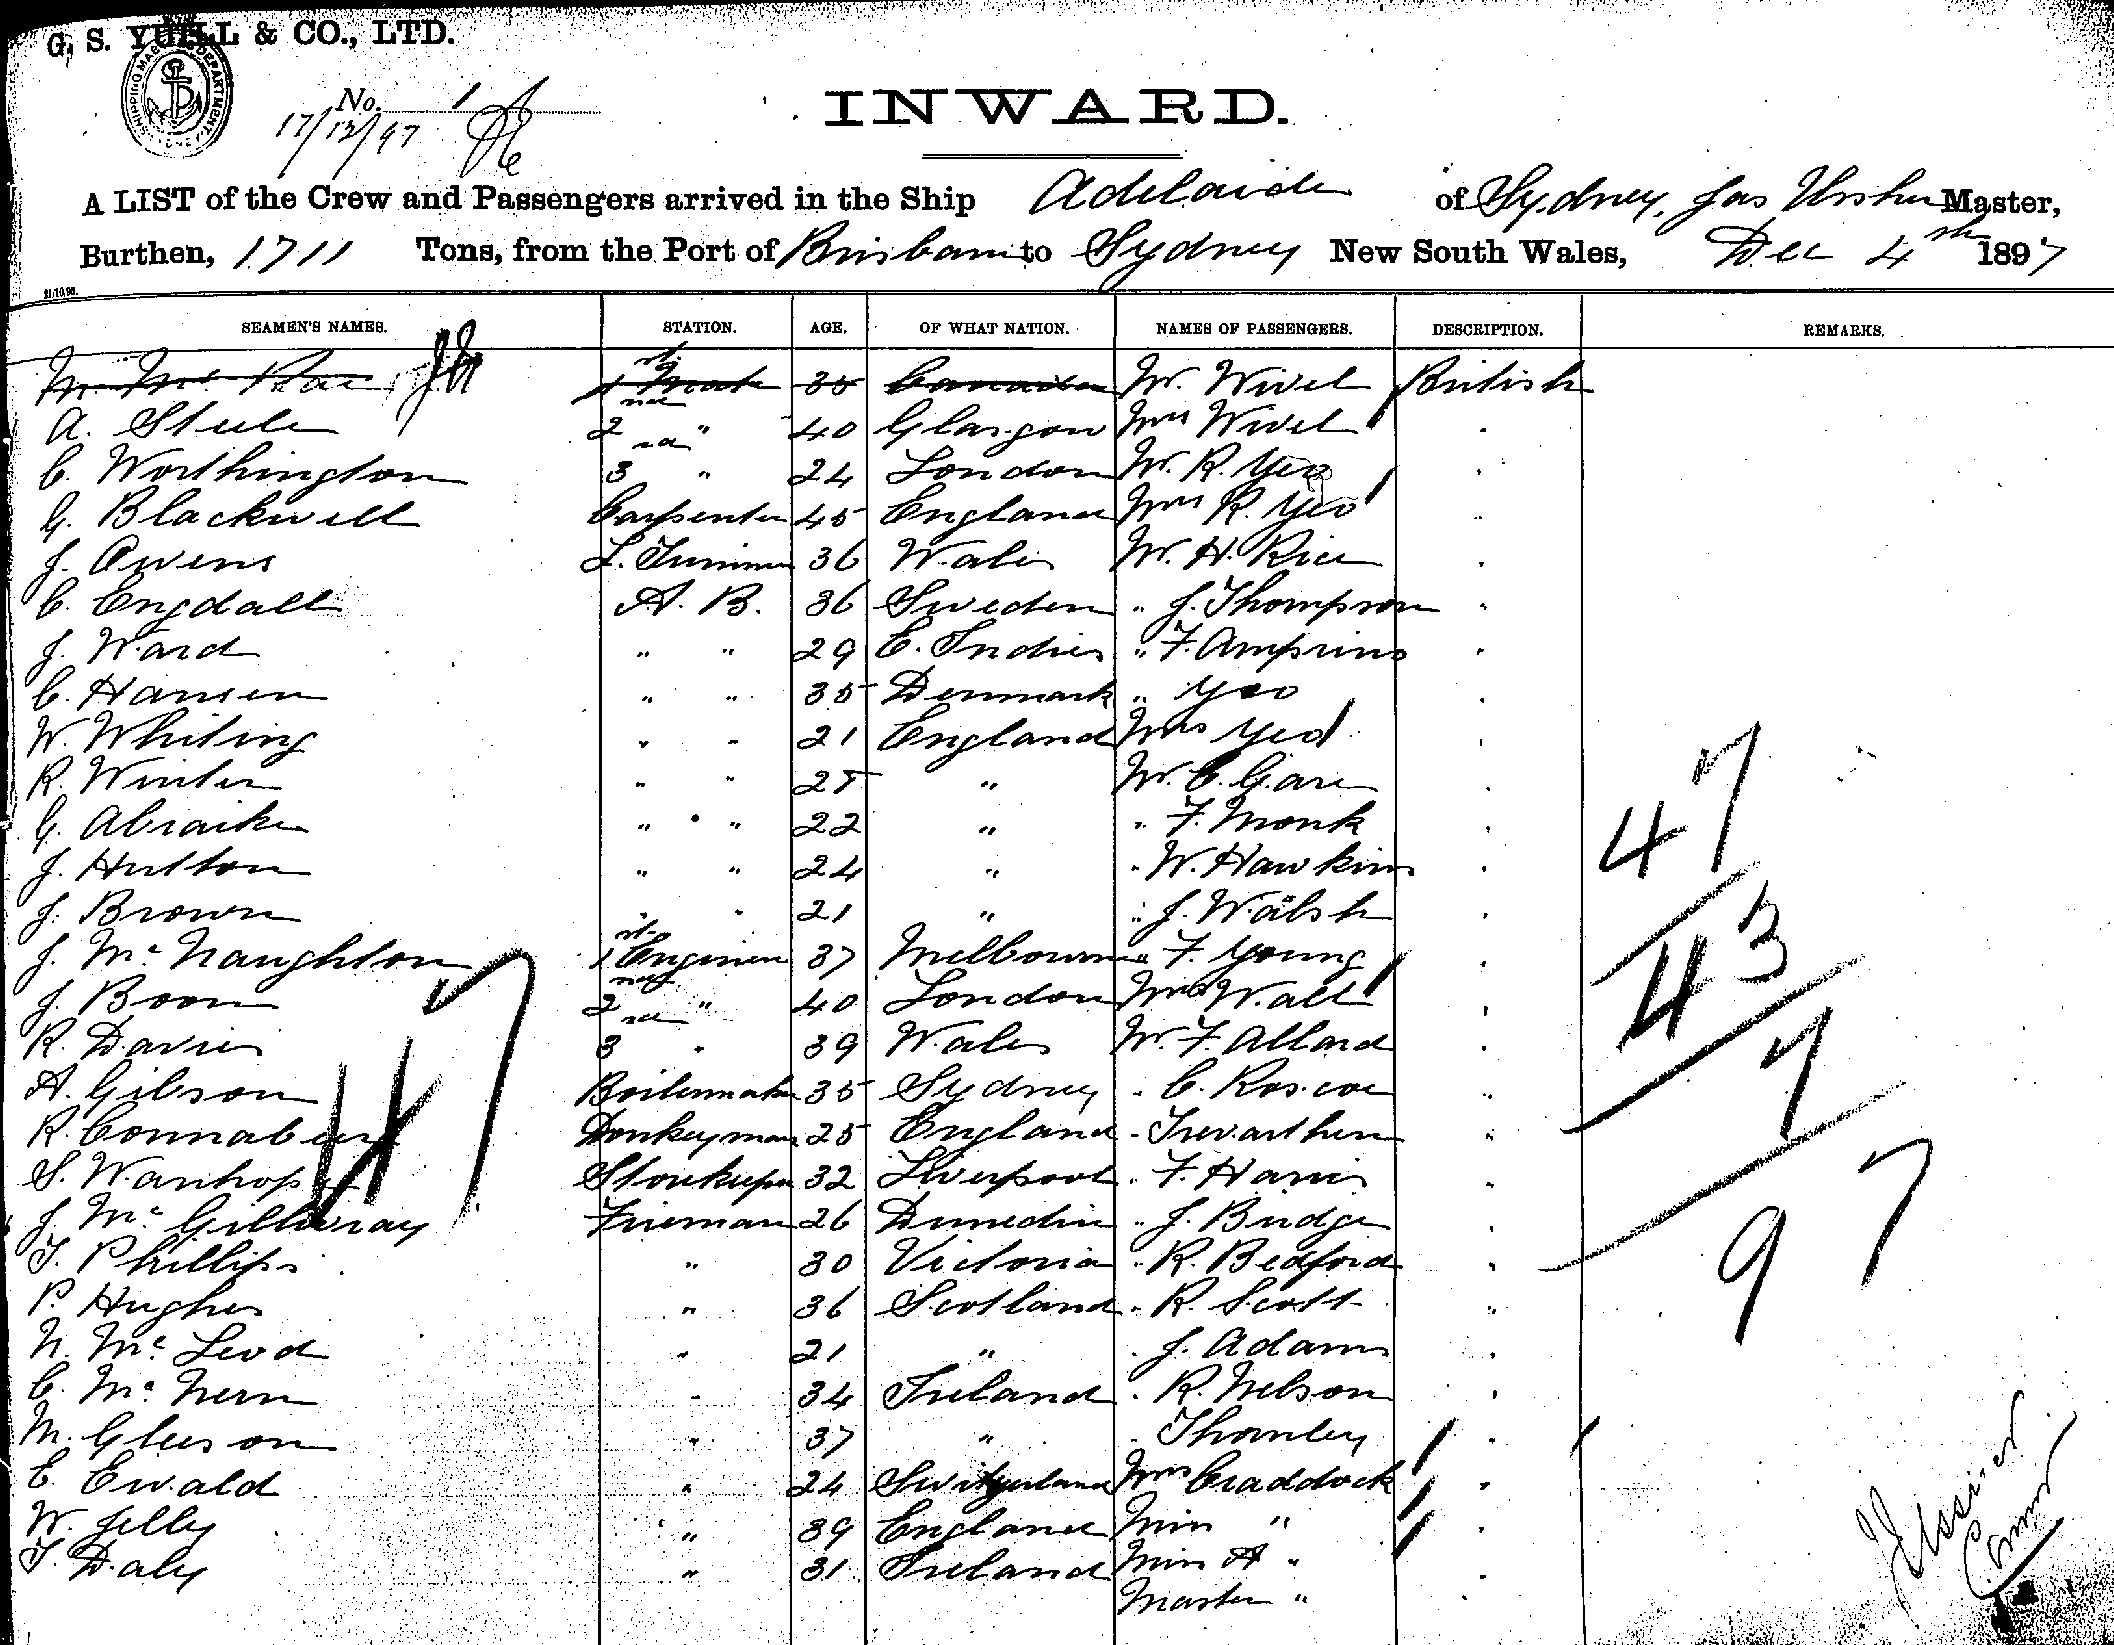 G. S. YUILL & CO., LTD.
No. 1
17/12/97
INWARD.
A LIST of the Crew and Passengers arrived in the Ship Adelaide of Sydney, Jas Ussher Master,
Burthen, 1711 Tons, from the Port of Brisbane to Sydney New South Wales, Dec 4th 1897
21/10/96.
SEAMEN'S NAMES. STATION. AGE. OF WHAT NATION. NAMES OF PASSENGERS. DESCRIPTION. REMARKS.
M. Mc Rae 1st Mate 35 Canadian Mr. Wivel British
A. Steele 2nd " 40 Glasgow Mrs Wivel "
C. Worthington 3rd " 24 London Mr. R. Yeo "
G. Blackwell Carpenter 45 England Mrs R. Yeo "
J. Owens L. Trimmer 36 Wales Mr. H. Rice "
C. Engdall A. B. 36 Sweden " J. Thompson "
J. Ward " " 29 E. Indies " F. "
C. Hansen " " 35 Denmark " Yeo "
W. Whiting " " 21 England Mrs Yeo "
R. Winter " " 25 " Mr. C. Gare "
G. " " 22 " " F. Monk "
J. Hutton " " 24 " " W. Hawkins "
J. Brown " " 21 " " J. Walsh "
J. Mc Naughton 1st Engineer 37 Melbourne " F. Young "
J. Boon 2nd " 40 London Mrs Watt "
R. Davies 3rd " 39 Wales Mr. F. Allard "
A. Gibson Boilermaker 35 Sydney " C. Roscoe "
R. Donkeyman 25 England " Trevarthen "
S. Wanhope Storekeeper 32 Liverpool " F. Harris "
J. Mc Gillivray Fireman 26 Dunedin " J. Budge "
T. Phillips " 30 Victoria " R. Bedford "
P. Hughes " 36 Scotland " R. Scott "
N. Mc Leod " 21 " " J. Adams "
C. Mc Nern " 34 Ireland " R. Nelson "
M. Gleeson " 37 " " Thornley "
E. Ewald " 24 Switzerland Mrs Craddock "
W. Jelly " 39 England Miss " "
T. Daly " 31 Ireland Miss A " "
Master "
47
47
43
7
97